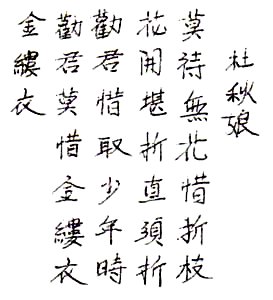 金縷衣
勸君莫惜金縷衣
勸君惜取少年時
花開堪折直須折
莫待無花惜折枝
杜秋娘